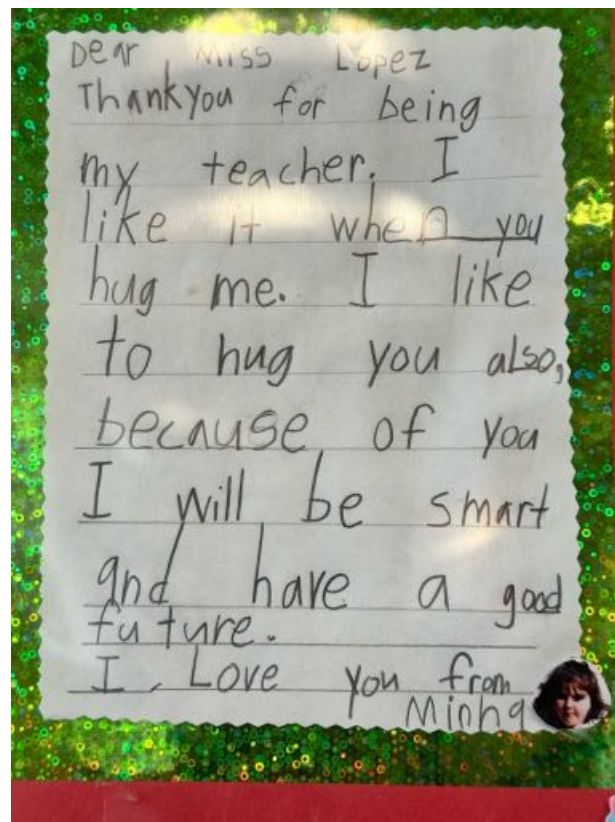 Dear Miss Lopez
Thankyou for being
my teacher. I
like it when you
hug me. I like
to hug you also,
because of you
I will be smart
and have a good
future.
I Love you from
Minha